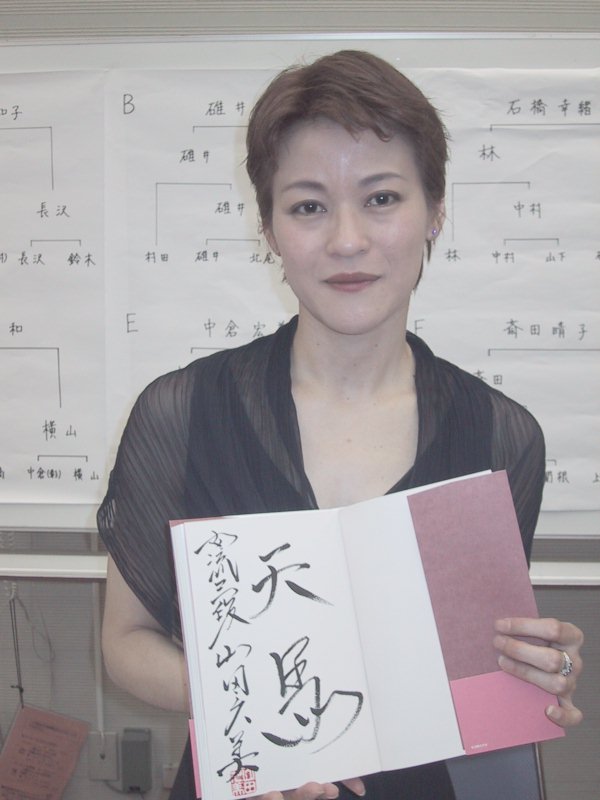 子
B 碓井
石橋幸緒
碓井
林
長沢
碓井
中村
長沢 鈴木
村田 碓井 北尾
林 中村 山下
和
E 中倉宏
斎田晴子
横山
中倉(彰) 横山
関根 上
天馬
女流 山田久美